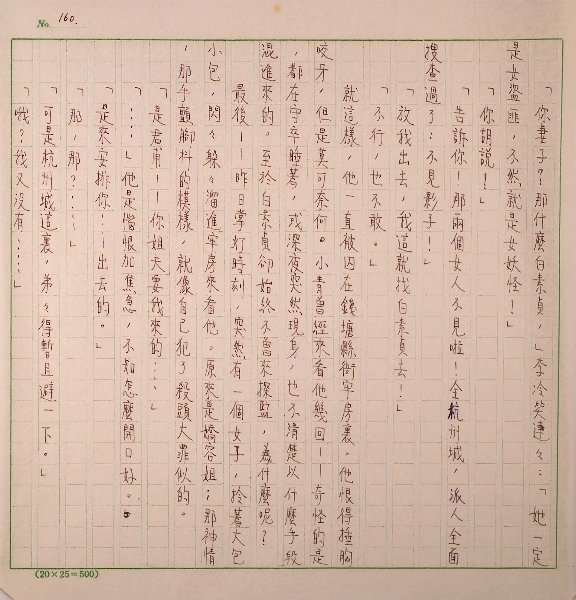 No. 160.
「你妻子？那什麼白素貞，」李冷笑連々：「她一定
是女盜匪，不然就是女妖怪！」
「你胡説！」
「告訴你！那兩個女人不見啦！全杭州城，派人全面
搜查過了：不見影子！」
「放我出去，我這就找白素貞去！」
「不行，也不敢。」
就這樣，他一直被囚在錢塘縣衙牢房裏。他恨得捶胸
咬牙，但是莫可奈何。小青曾經來看他幾回——奇怪的是
，都在守卒睡著，或深夜突然現身，也不清楚以什麼手段
混進來的。至於白素貞卻始終不曾來探監，為什麼呢？
最後——昨日掌灯時刻，突然有一個女子，拎著大包
小包，閃々躲々溜進牢房來看他。原來是嬌容姐；那神情
，那手顫腳抖的模樣，就像自己犯了殺頭大罪似的。
「是君甫——你姐夫要我來的……」
「……」他是惱恨加焦急，不知怎麼開口好。
「是來安排你……出去的。」
「那，那？……」
「可是杭州城這裏，弟々得暫且避一下。」
「哦？我又沒有……」
(20×25=500)